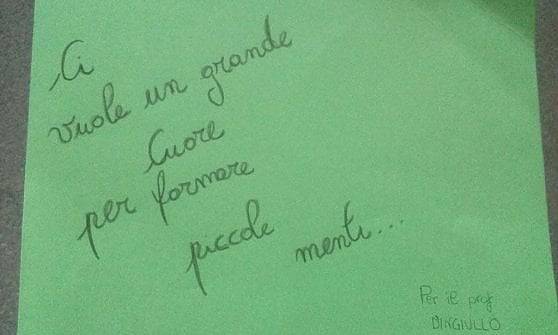 Ci
vuole un grande
Cuore
per formare
piccole menti...
Per il prof
DINGIULLO